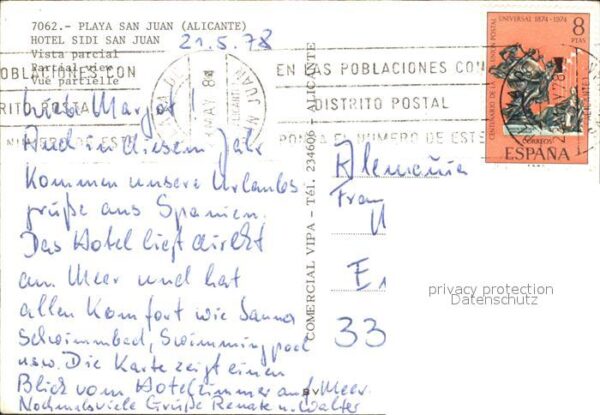 7062.- PLAYA SAN JUAN (ALICANTE)
HOTEL SIDI SAN JUAN
Vista parcial
Parcial view
Vue partielle
21.5.78
Liebe Margot!
Auch in diesem Jahr
kommen unsere Urlaubs
grüße aus Spanien.
Das Hotel liegt direkt
am Meer und hat
allen Komfort wie Sauna
Schwimmbad, Swimmingpool
usw. Die Karte zeigt einen
Blick vom Hotelzimmer aufs Meer.
Nochmals viele Grüße Renate u. Walter
COMERCIAL VIPA - Tél. 234606 - ALICANTE
POBLACIONES CON
DISTRITO POSTAL
EN LAS POBLACIONES CON
DISTRITO POSTAL
PONGA EL NUMERO DE ESTE
CENTENARIO DE LA UNION POSTAL UNIVERSAL 1874-1974
8
PTAS
CORREOS
ESPAÑA
Alemania
Frau
33
privacy protection
Datenschutz